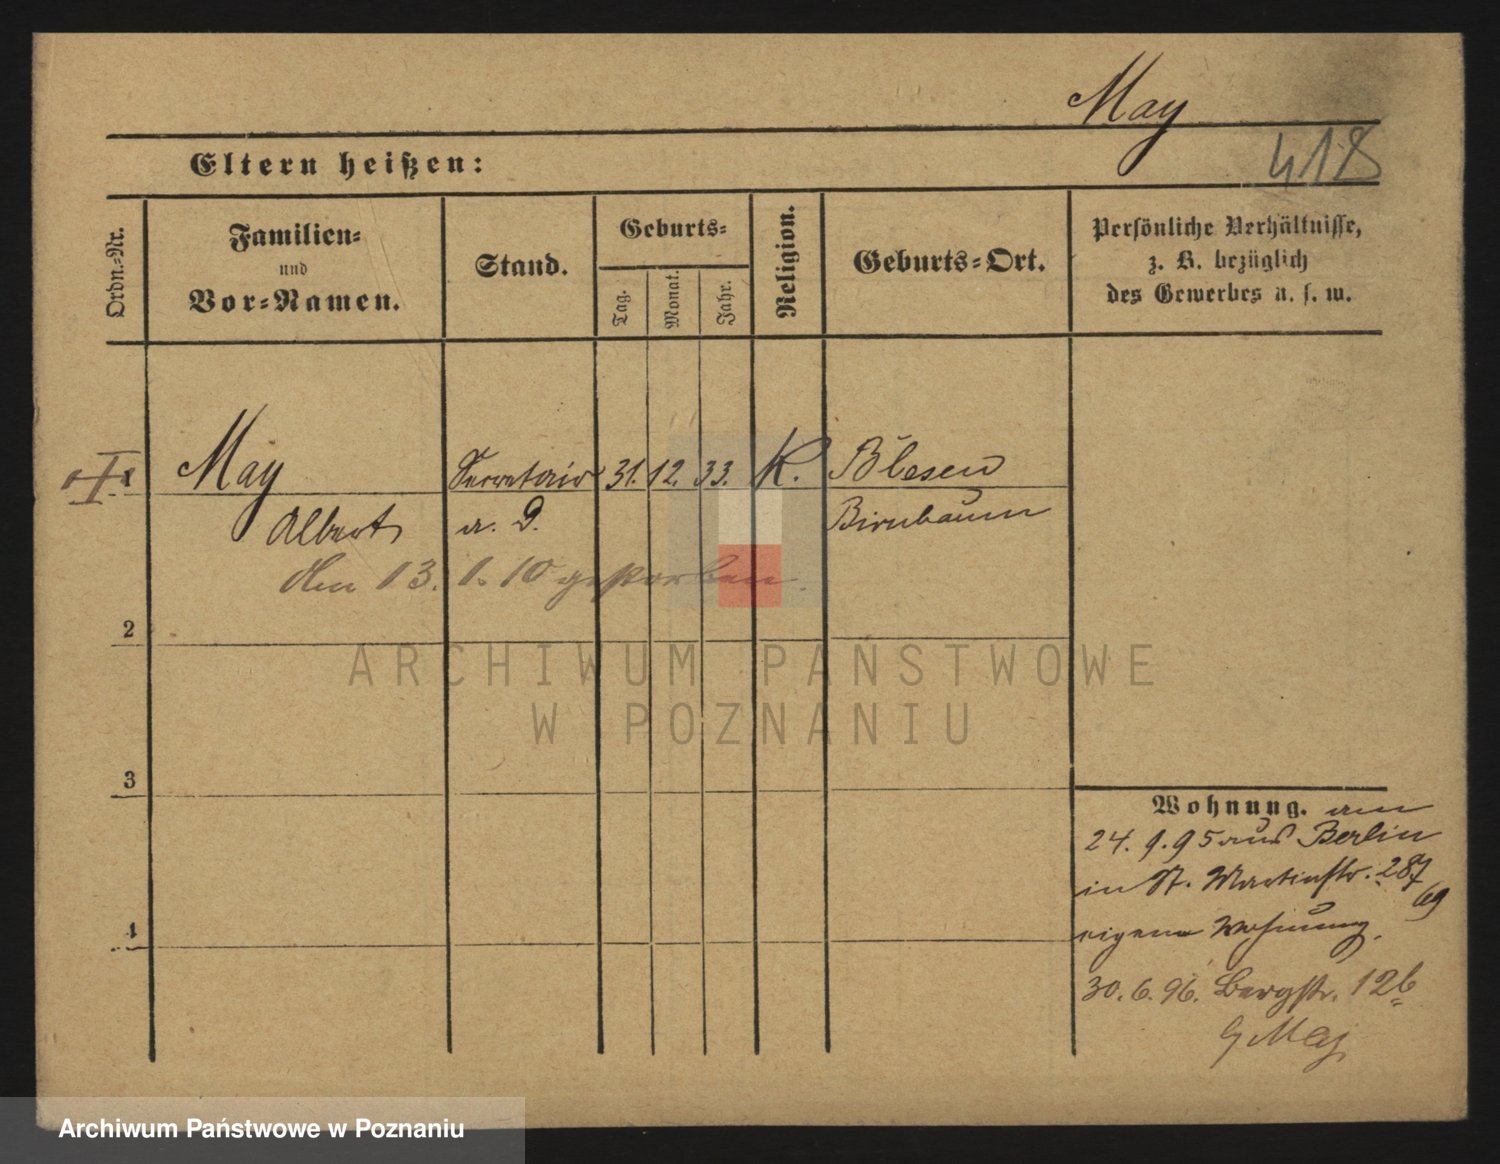 May
418
Eltern heißen:
Ordn.-Nr.
Familien-
und
Vor-Namen.
Stand.
Geburts-
Tag.
Monat.
Jahr.
Religion.
Geburts-Ort.
Persönliche Verhältnisse,
z. B. bezüglich
des Gewerbes u. s. w.
1 May Secretair 31. 12. 33. K. Blesen
Albert a. D. Birnbaum
den 13. 1. 10 gestorben.
2
ARCHIWUM PAŃSTWOWE
W POZNANIU
3
Wohnung. am
24. 9. 95 aus Berlin
in St. Martinstr.
69
eigene Wohnung.
4
30. 6. 96. Bergstr. 12b
May
Archiwum Państwowe w Poznaniu